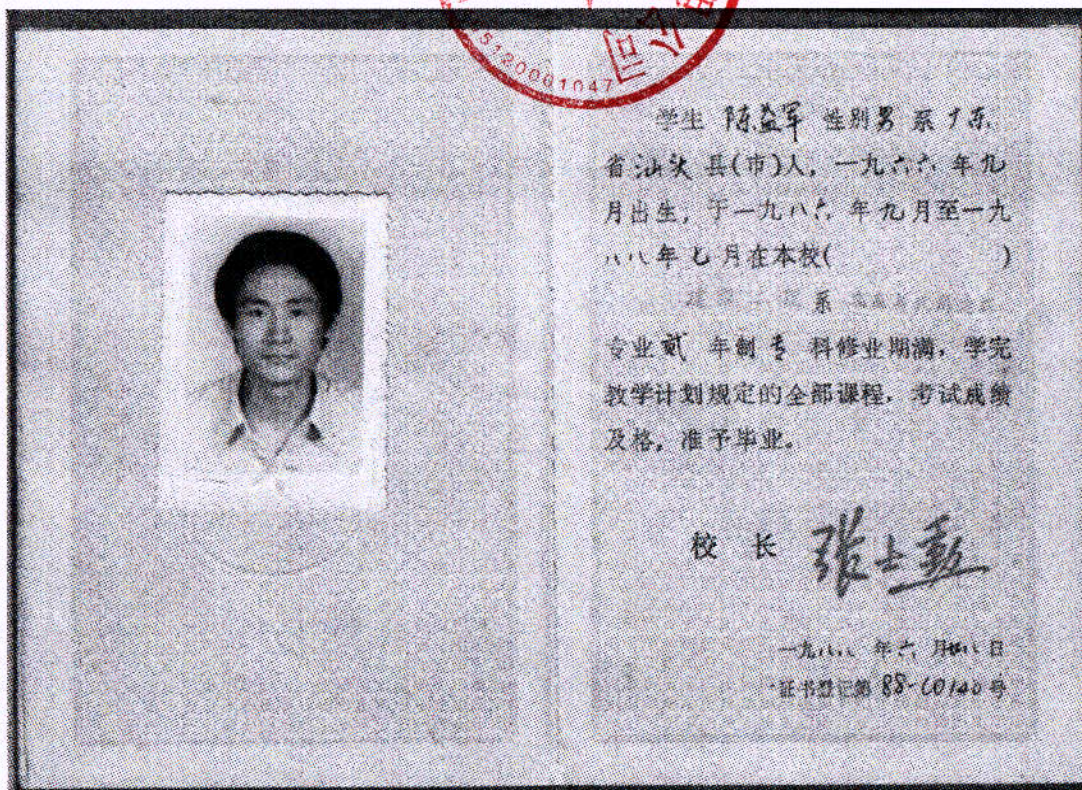 公司
5120001047
学生 陈益军 性别男 系广东
省汕头县(市)人，一九六六年九
月出生，于一九八六年九月至一九
八八年七月在本校( )
系
专业贰年制专科修业期满，学完
教学计划规定的全部课程，考试成绩
及格，准予毕业。
校 长
一九八八年六月 日
证书登记第88-C0140号